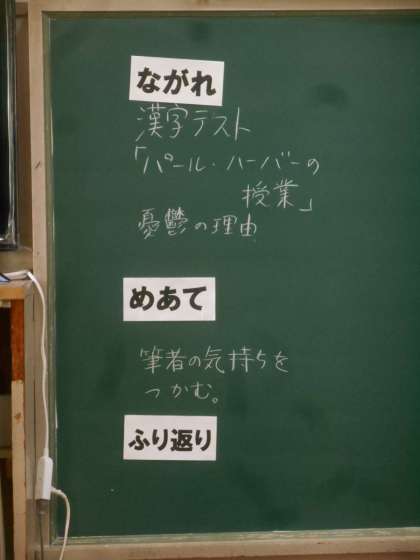 ながれ
漢字テスト
「パール・ハーバーの
授業」
憂鬱の理由
めあて
筆者の気持ちを
つかむ。
ふり返り